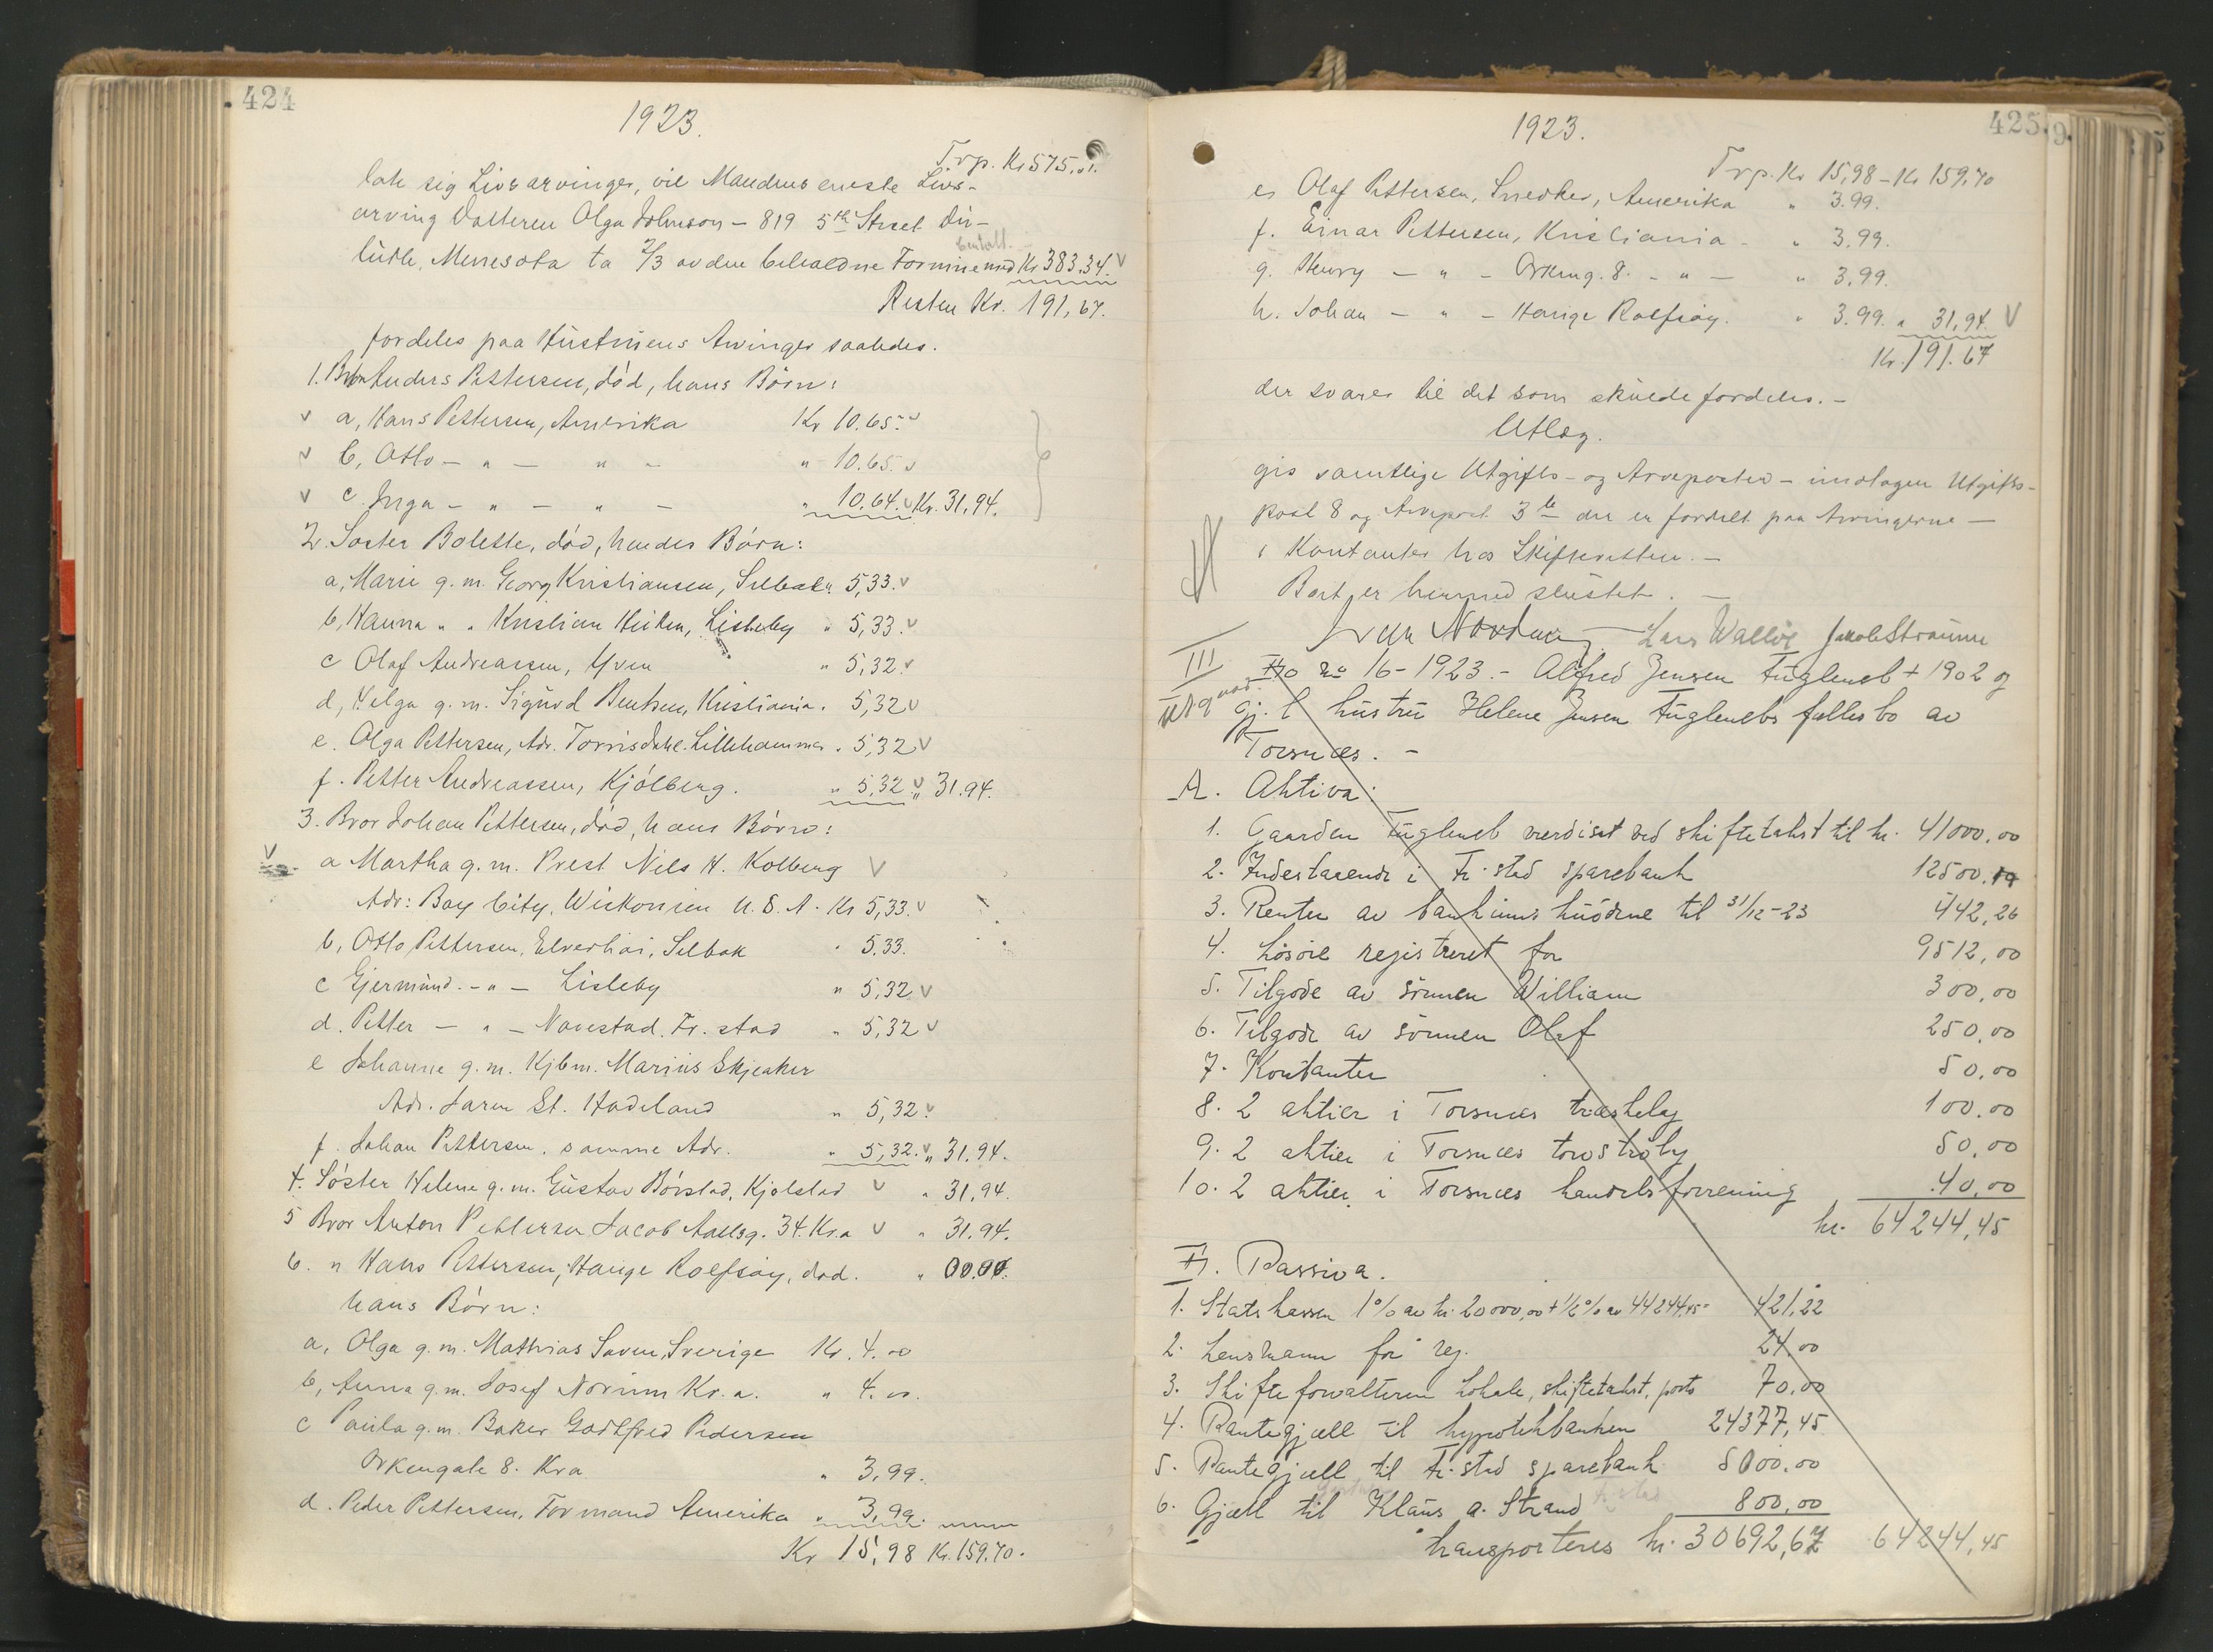 424
1923.
Trp. Kr 575,01.
late sig Livsarvinger, vil Mandens eneste Livs-
arving Datteren Olga Johnson - 819 5th Street Du-
luth, Mennesota ta 2/3 av den beholdne Formue med Kr 383.34. V
betalt.
Resten Kr. 191,67.
fordeles paa Hustruens Arvinger saaledes.
1. Bror Anders Pettersen, död, hans Börn:
v a, Hans Pettersen, Amerika Kr 10.65. v
v b, Otto - " - " - " - 10.65. v
v c. Inga - " - " - " 10.64. v Kr. 31.94.
2. Söster Bolette, död, hendes Börn:
a, Marie g. m. Georg Kristiansen, Selbak " 5,33. v
b, Hanna " " Kristian Heiken, Lisleby " 5,33. v
c Olaf Andreassen, Yven " 5,32. v
d, Helga g. m. Sigurd Bentsen, Kristiania. 5,32 v
e. Olga Pettersen, Adr. Torrisdahl. Lillehammer. 5,32 v
f. Petter Andreassen, Kjölberg. " 5,32 v " 31.94.
3. Bror Johan Pettersen, död, hans Börn:
v a Martha g. m. Prest Nils H. Kolberg V
Adr: Bay City, Wiskonsien U. S. A. Kr 5,33. v
b, Otto Pettersen, Elverhöi, Selbak " 5.33.
c Gjermund. - " - Lisleby " 5,32 v
d. Petter - " - Navestad. Fr. stad " 5,32 v
e Johanne g. m. Kjbm. Marius Skjeaker
Adr. Jaren St. Hadeland " 5,32. v
f. Johan Pettersen. samme Adr. " 5,32. v " 31.94.
4. Söster Helene g. m. Gustav Börstad, Kjölstad v " 31,94.
5 Bror Anton Pettersen Jacob Aallsg. 34. Kr.a v " 31.94.
6. " Hans Pettersen, Hauge Rolfsöy, död. " 00.00.
hans Börn:
a, Olga g. m. Mathias Saven, Sverige Kr. 4.00
b, Anna g. m. Josef Norum Kr. a. " 4.00.
c Paula g. m. Baker Godtfred Pedersen
Orkengate 8. Kra " 3,99.
d. Peder Pettersen, Formand Amerika " 3,99.
Kr 15,98 Kr. 159.70.
425
1923.
Trp. Kr 15,98 - Kr 159,70
e. Olaf Pettersen, Snedker, Amerika " 3.99.
f. Einar Pettersen, Kristiania - " 3,99.
g. Henry - " - Orkeng. 8. - " - " 3,99.
h. Johan - " - Hauge Rolfsöy. " 3.99. " 31,94. V
Kr. 191.67
der svarer til det som skulde fordeles. -
Utlæg.
gis samtlige Utgifts- og Arveposter - undtagen Utgifts-
post 8 og Arvepost 3 der er fordelt paa Arvingerne -
i Kontanter hos Skifteretten. -
Boet er hermed sluttet. -
Ivar Nordang Lars Walløe Jakob Straume
III Bo no 16 - 1923. - Alfred Jensen Fugleneb + 1902 og
gj. l. hustru Helene Jensen Fuglenebs fælles bo av
Torsnæs. -
A. Aktiva:
1. Gaarden Fugleneb værdisat ved skiftetakst til kr. 41000,00
2. Indestaaende i Fr. stad sparebank 12500.19
3. Renter av bankinnskuddene til 31/12-23 442,26
4. Lösöre registreret for 9512,00
5. Tilgode av sönnen William 300,00
6. Tilgode av sönnen Olaf 250,00
7. Kontanter 50,00
8. 2 aktier i Torsnæs træskelag 100.00
9. 2 aktier i Torsnæs torvströlag 50,00
10. 2 aktier i Torsnæs handelsforrening 40,00
kr. 64244,45
B. Passiva.
1. Statskassen 1% av kr. 20000,00 + 1/2% av 44244,45 = 421,22
2. Lensmann for reg. 24,00
3. Skifteforvalteren lokale, skiftetakst, porto 70,00
4. Pantegjæll til hypotekbanken 24377,45
5. Pantegjæll til Fr. stad sparebank 5000.00
6. Gjæll til Klaus A. Strand Fr. stad 800,00
transporteres kr. 30692,67 64244,45